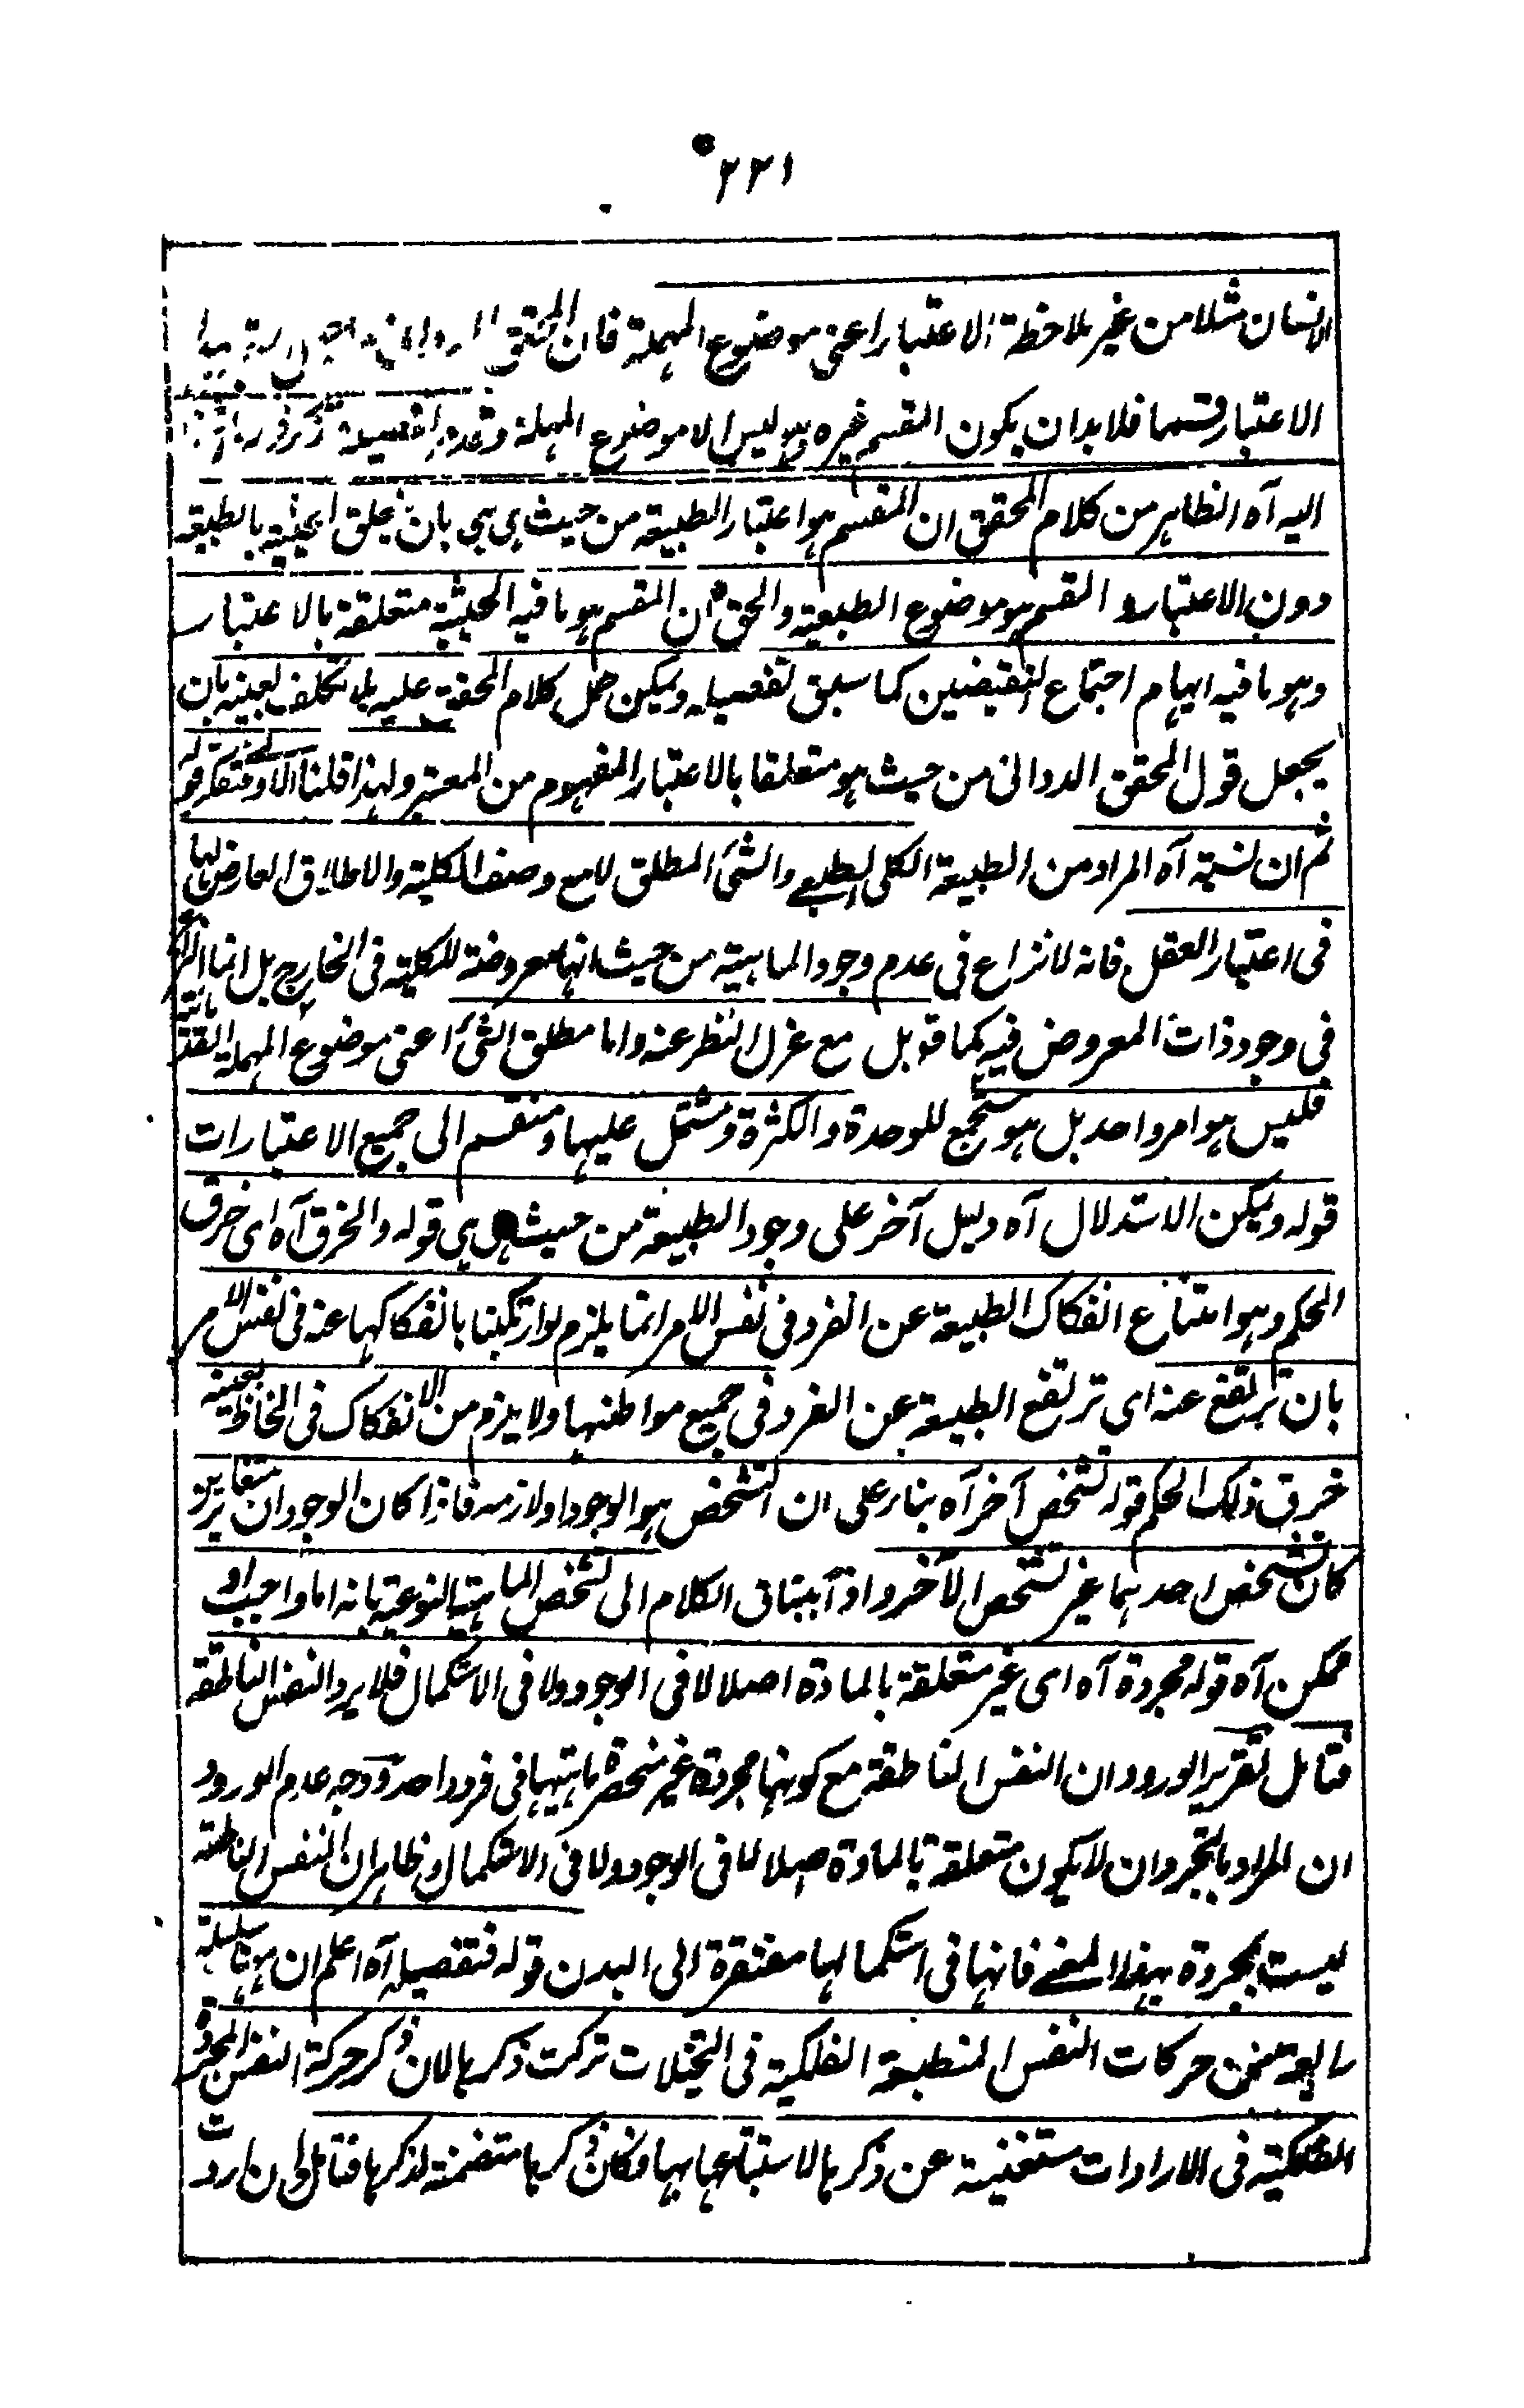 ٢٢١
الانسان مثلا من غير ملاحظة الاعتبار اعنى موضوع المهملة فان
الاعتبار قسما فلا بد ان يكون المقسم غيره وهو ليس الا موضوع المهملة
اليه آه الظاهر من كلام المحقق ان المقسم هو اعتبار الطبيعة من حيث هى هى بان يتعلق الحيثية بالطبيعة
دون الاعتبار و المقسم هو موضوع الطبعية والحق ان المقسم هو ما فيه الحيثية متعلقة بالاعتبار
وهو ما فيه ايهام اجتماع النقيضين كما سبق تفصيله ويمكن حمل كلام المحقق عليه بلا تكلف بعينه بان
يجعل قول المحقق الدوانى من حيث هو متعلقا بالاعتبار المفهوم من المعتبر ولهذا قلنا
ثم ان نسبة آه المراد من الطبيعة الكلى الطبعى والشئ المطلق لا مع وصف الكلية والاطلاق العارض لها
فى اعتبار العقل فانه لا نزاع فى عدم وجود الماهية من حيث انها معروضة للكلية فى الخارج بل انما النزاع
فى وجود ذات المعروض فيه كما قوبل مع عزل النظر عنه واما مطلق الشئ اعنى موضوع المهملة القدمائية
فليس هو امر واحد بل هو مجمع للوحدة والكثرة ومشتمل عليها ومنقسم الى جميع الاعتبارات
قوله ويمكن الاستدلال آه دليل آخر على وجود الطبيعة من حيث هى هى قوله والخرق آه اى خرق
الحكم وهو امتناع انفكاك الطبيعة عن الفرد فى نفس الامر انما يلزم لو ارتكبنا بانفكاكها عنه فى نفس الامر
بان ترتفع عنه اى ترتفع الطبيعة عن الفرد فى جميع مواطنها ولا يلزم من الانفكاك فى لحاظ بعينه
خرق ذلك الحكم قوله تشخص آخر آه بناء على ان التشخص هو الوجود او لازمه فاذا كان الوجودان متغايرين
كان تشخص احدهما غير تشخص الآخر و اذ آه يساق الكلام الى تشخص الماهية النوعية بانه اما واجب او
ممكن آه قوله مجردة آه اى غير متعلقة بالمادة اصلا لا فى الوجود ولا فى الاستكمال فلا يرد النفس الناطقة
فتامل تقرير الورود ان النفس الناطقة مع كونها مجردة غير منحصرة ماهيتها فى فرد واحد ووجه عدم الورود
ان المراد بالتجرد ان لا يكون متعلقة بالمادة اصلا لا فى الوجود ولا فى الاستكمال وظاهر ان النفس الناطقة
ليست بمجردة بهذا المعنى فانها فى استكمالها مفتقرة الى البدن قوله فتفصيله آه اعلم ان ههنا سلسلة
رابعة من حركات النفس المنطبعة الفلكية فى التخيلات تركت ذكرها لان ذكر حركة النفس المجردة
الفلكية فى الارادات مستغنية عن ذكرها لاستتباعها بها فكان ذكرها متضمنة لذكرها فتامل وان اردت